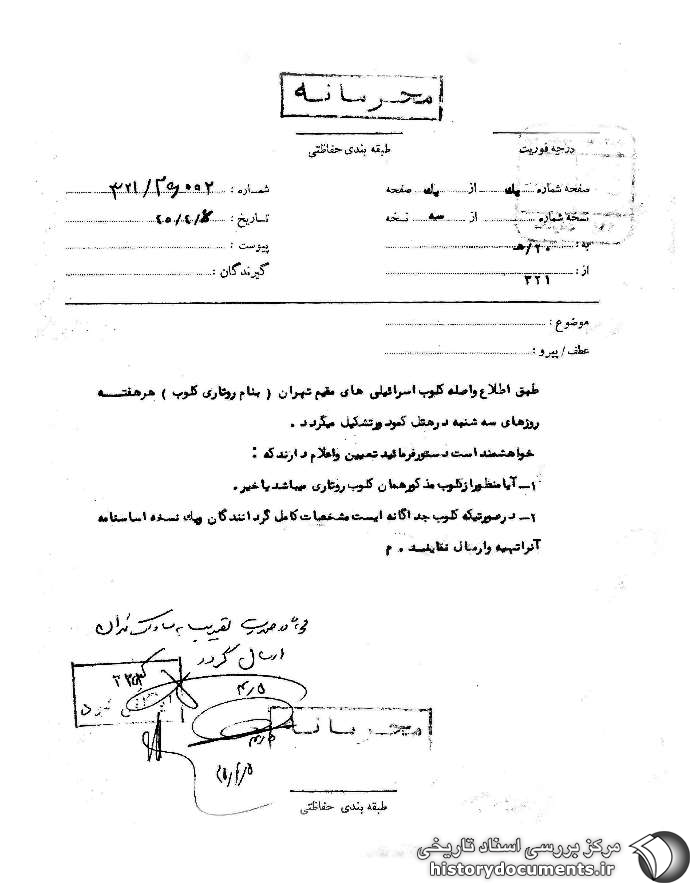 محرمانه
طبقه بندی حفاظتی
درجه فوریت
صفحه شماره یك از یك صفحه
نسخه شماره از سه نسخه
به: ۲۰/ه
از: ۳۲۱
شماره: ۳۲۱/
تاریخ: ۴۵/۴/
پیوست:
گیرندگان:
موضوع:
عطف/پیرو:
طبق اطلاع واصله کلوب اسرائیلی های مقیم تهران ( بنام روتاری کلوب ) هر هفته
روزهای سه شنبه در هتل کمودور تشکیل میگردد .
خواهشمند است دستور فرمائید تعیین واعلام دارند که :
۱ـ آیا منظور از کلوب مذکور همان کلوب روتاری میباشد یا خیر .
۲ـ در صورتیکه کلوب جداگانه ایست مشخصات کامل گردانندگان ویك نسخه اساسنامه
آنرا تهیه وارسال نمایند . م
ارسال گردد
۴/۵
محرمانه
طبقه بندی حفاظتی
مرکز بررسی اسناد تاریخی
historydocuments.ir